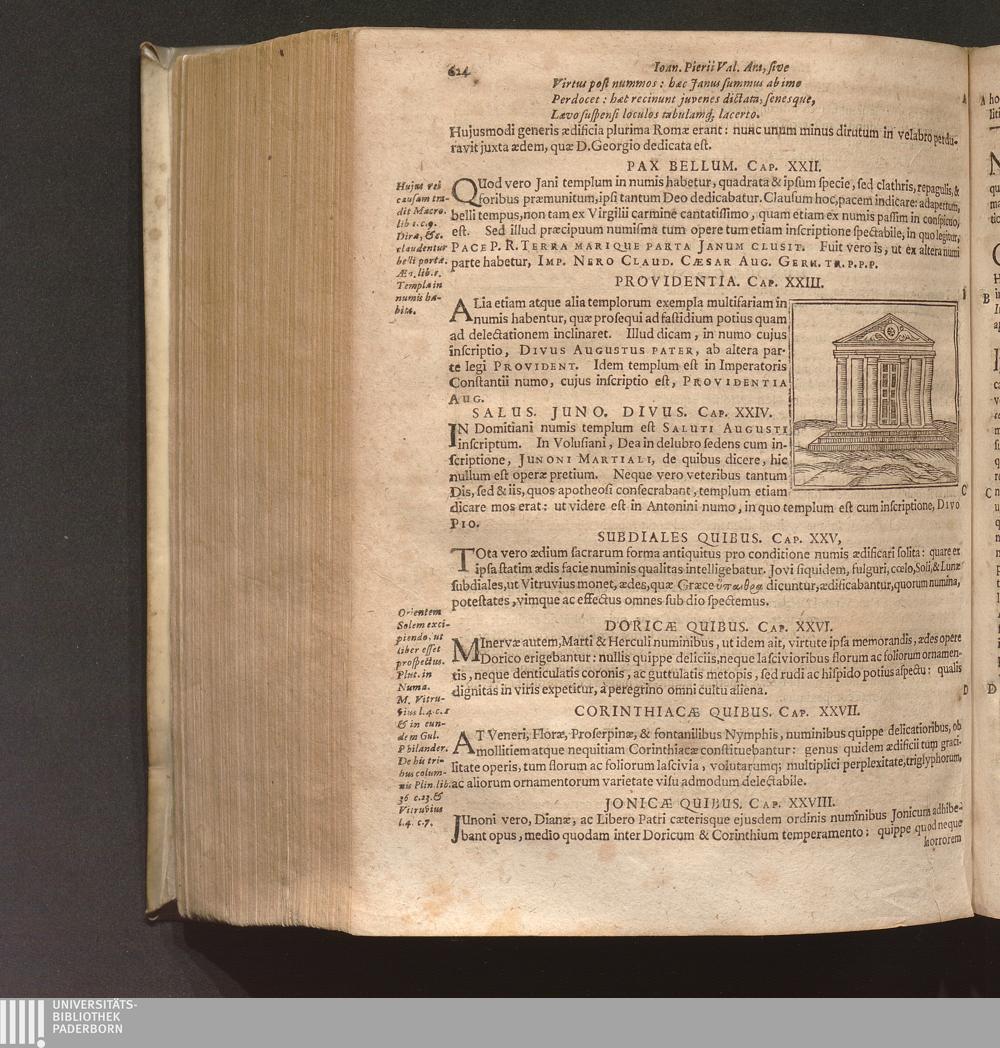 624
Ioan. Pierii Val. Ant, ſive
Virtus poſt nummos : hæc Janus ſummus ab imo
Perdocet : hæc recinunt juvenes dictata, ſenesque,
Lævo ſuſpenſi loculos tabulamq́; lacerto.
Hujusmodi generis ædificia plurima Romæ erant : nunc unum minus dirutum in velabro perdu-
ravit juxta ædem, quæ D. Georgio dedicata eſt.
PAX BELLUM. CAP. XXII.
QUod vero Jani templum in numis habetur, quadrata & ipſum ſpecie, ſed clathris, repagulis, &
foribus præmunitum, ipſi tantum Deo dedicabatur. Clauſum hoc, pacem indicare: adapertum,
belli tempus, non tam ex Virgilii carmine cantatiſſimo, quam etiam ex numis paſſim in conſpicuo,
eſt. Sed illud præcipuum numiſma tum opere tum etiam inſcriptione ſpectabile, in quo legitur,
PACE P. R. TERRA MARIQUE PARTA JANUM CLUSIT. Fuit vero is, ut ex altera numi
parte habetur, IMP. NERO CLAUD. CÆSAR AUG. GERM. TR. P. P. P.
Hujus rei
cauſam tra-
dit Macro.
lib 1. c. 9.
Diræ, &c.
claudentur
belli portæ.
Æn. lib. 1.
Templa in
numis ha-
bita.
PROVIDENTIA. CAP. XXIII.
ALia etiam atque alia templorum exempla multifariam in
numis habentur, quæ proſequi ad faſtidium potius quam
ad delectationem inclinaret. Illud dicam, in numo cujus
inſcriptio, DIVUS AUGUSTUS PATER, ab altera par-
te legi PROVIDENT. Idem templum eſt in Imperatoris
Conſtantii numo, cujus inſcriptio eſt, PROVIDENTIA
AUG.
SALUS. JUNO. DIVUS. CAP. XXIV.
IN Domitiani numis templum eſt SALUTI AUGUSTI
inſcriptum. In Voluſiani, Dea in delubro ſedens cum in-
ſcriptione, JUNONI MARTIALI, de quibus dicere, hic
nullum eſt operæ pretium. Neque vero veteribus tantum
Dis, ſed & iis, quos apotheoſi conſecrabant, templum etiam
dicare mos erat: ut videre eſt in Antonini numo, in quo templum eſt cum inſcriptione, DIVO
PIO.
SUBDIALES QUIBUS. CAP. XXV,
TOta vero ædium ſacrarum forma antiquitus pro conditione numis ædificari ſolita: quare ex
ipſa ſtatim ædis facie numinis qualitas intelligebatur. Jovi ſiquidem, fulguri, cœlo, Soli, & Lunæ
ſubdiales, ut Vitruvius monet, ædes, quæ Græce ὕπαιθρα dicuntur, ædificabantur, quorum numina,
poteſtates, vimque ac effectus omnes ſub dio ſpectemus.
DORICÆ QUIBUS. CAP. XXVI.
MInervæ autem, Marti & Herculi numinibus, ut idem ait, virtute ipſa memorandis, ædes opere
Dorico erigebantur: nullis quippe deliciis, neque laſcivioribus florum ac foliorum ornamen-
tis, neque denticulatis coronis, ac guttulatis metopis, ſed rudi ac hiſpido potius aſpectu: qualis
dignitas in viris expetitur, a peregrino omni cultu aliena.
CORINTHIACÆ QUIBUS. CAP. XXVII.
AT Veneri, Floræ, Proſerpinæ, & fontanilibus Nymphis, numinibus quippe delicatioribus, ob
mollitiem atque nequitiam Corinthiacæ conſtituebantur: genus quidem ædificii tum graci-
litate operis, tum florum ac foliorum laſcivia, volutarumq; multiplici perplexitate, triglyphorum,
ac aliorum ornamentorum varietate viſu admodum delectabile.
JONICÆ QUIBUS. CAP. XXVIII.
JUnoni vero, Dianæ, ac Libero Patri cæterisque ejusdem ordinis numinibus Jonicum adhibe-
bant opus, medio quodam inter Doricum & Corinthium temperamento: quippe quod neque
horrorem
Orientem
Solem exci-
piendo, ut
liber eſſet
proſpectus.
Plut. in
Numa.
M. Vitru-
vius l. 4. c. 1
& in eun-
dem Gul.
Philander.
De his tri-
bus colum-
nis Plin. lib.
36 c. 23. &
Vitruvius
l. 4. c. 7.
A
C
D
A
B
C
D
UNIVERSITÄTS-
BIBLIOTHEK
PADERBORN